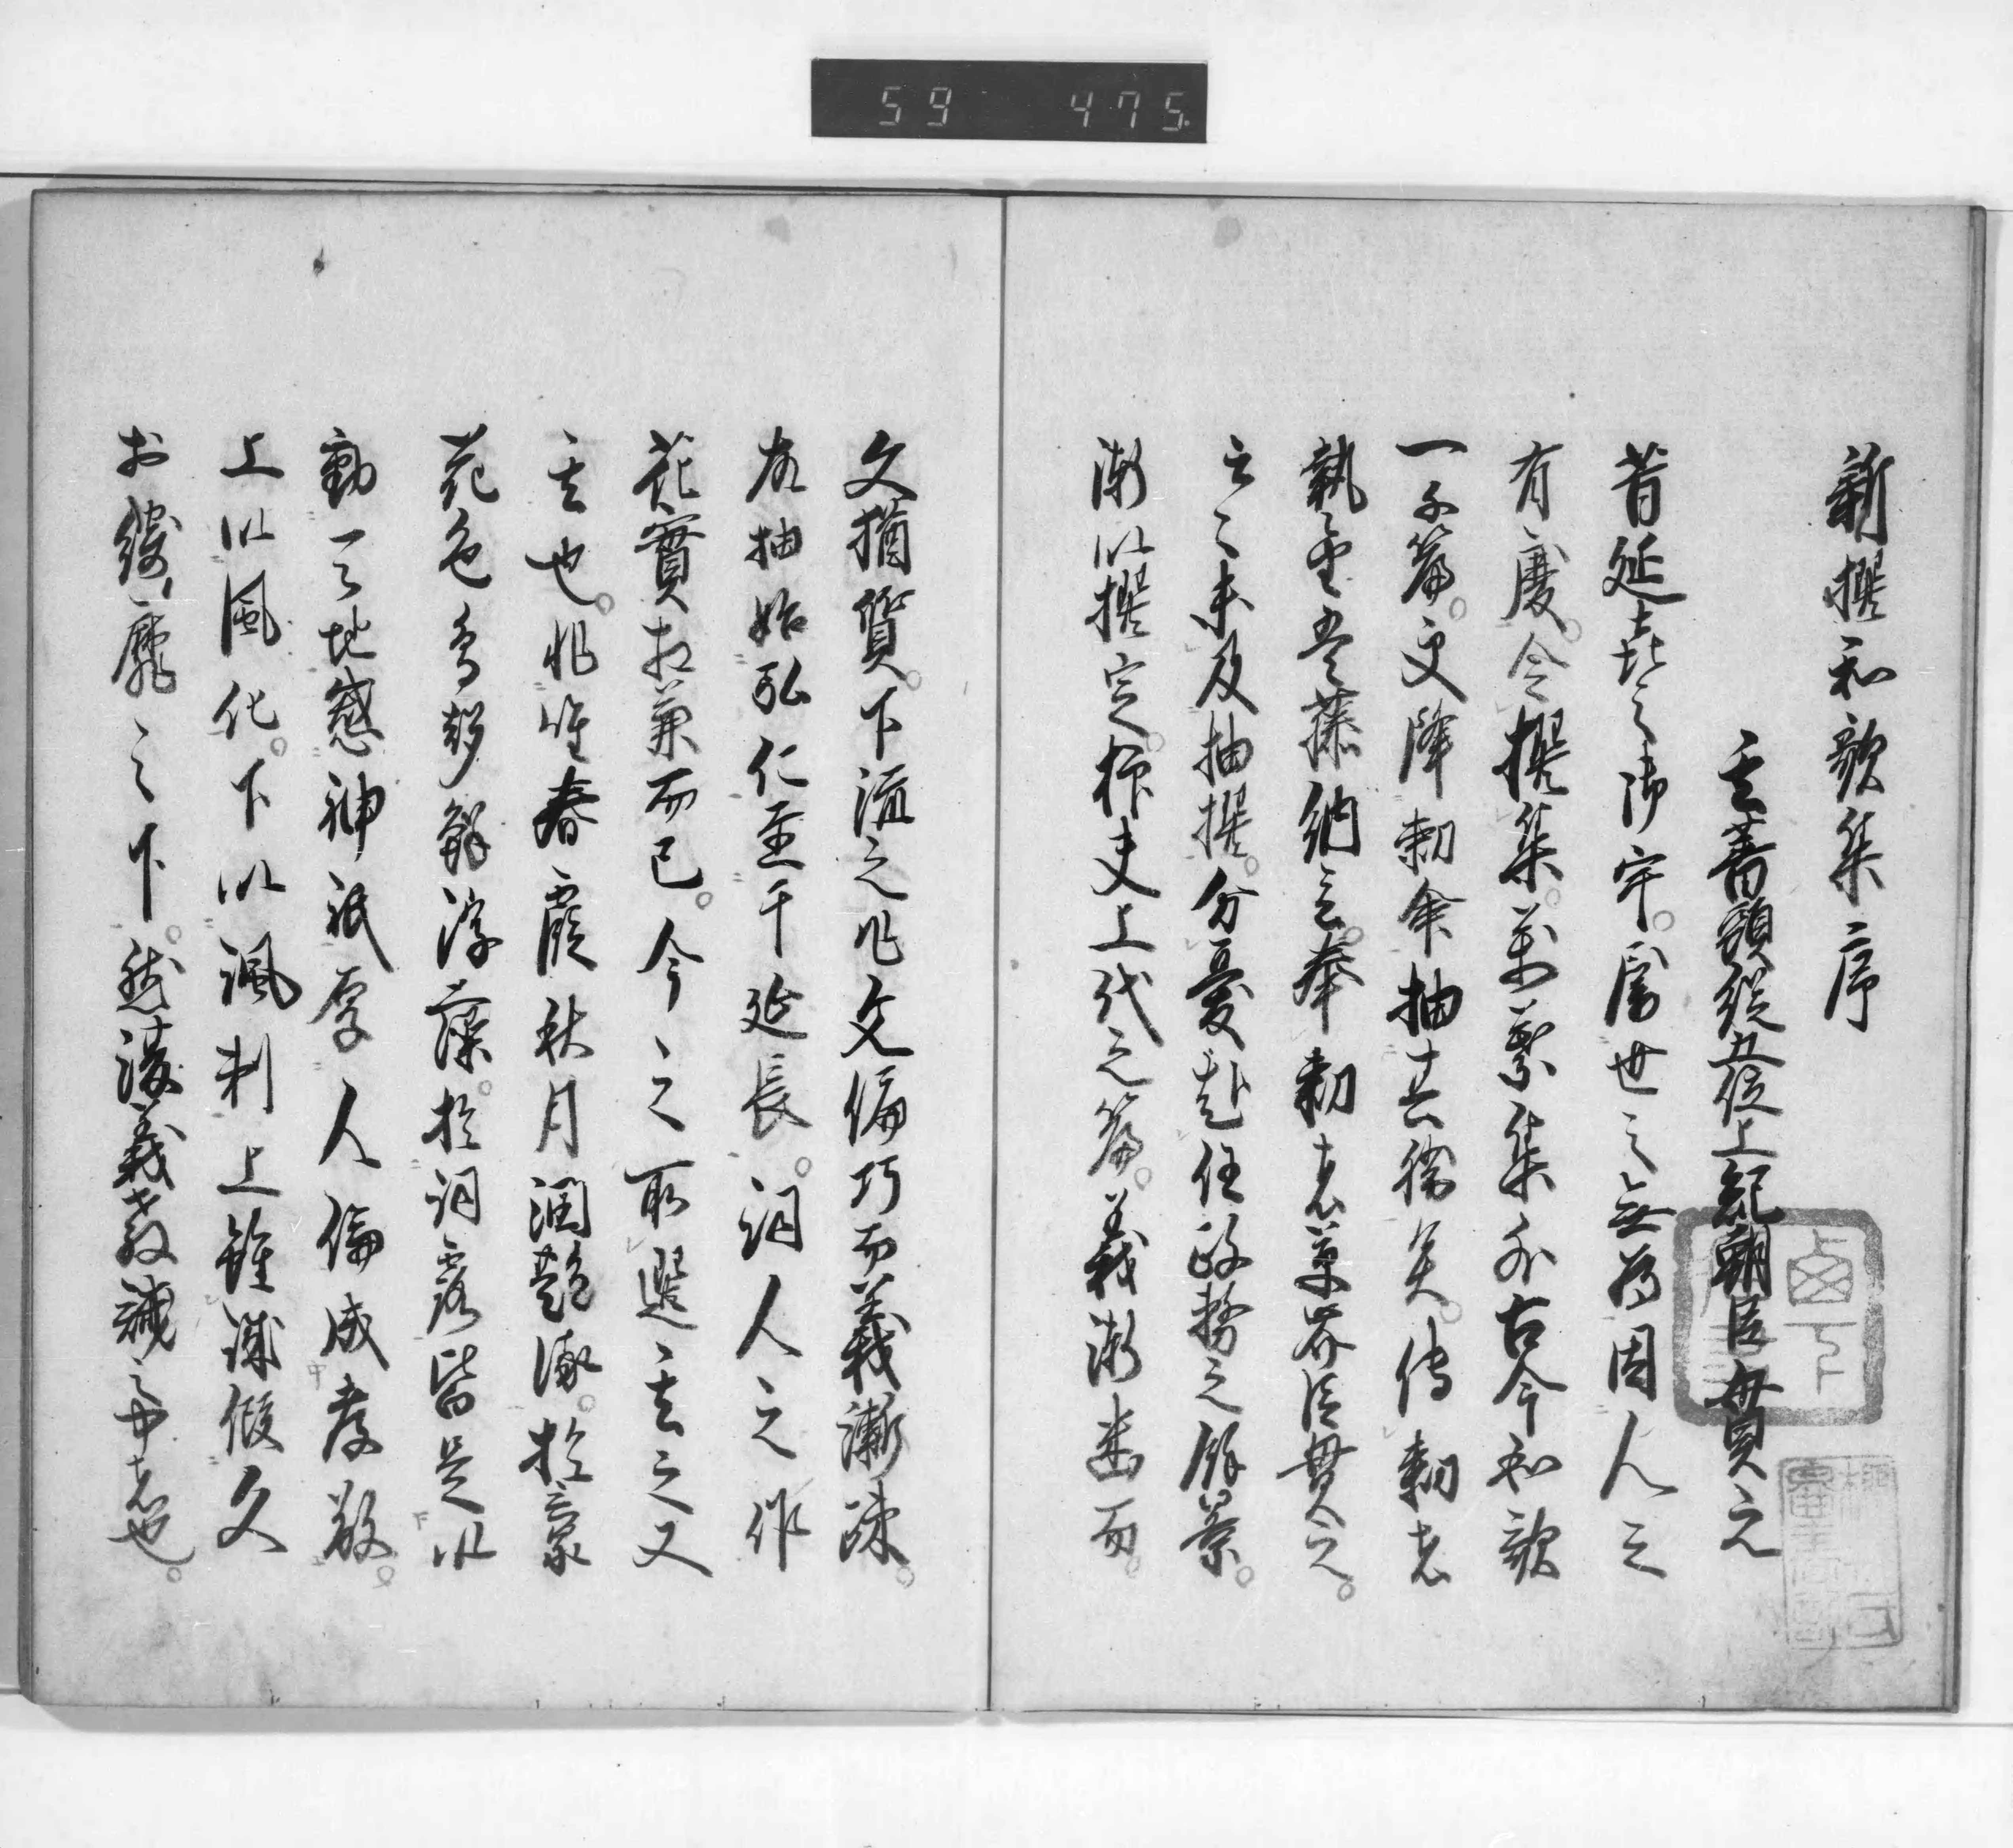 59 475
新撰和歌集序
玄蕃頭従五位上紀朝臣貫之
昔延喜之御宇。属世之無為因人之
有慶。令撰集。万葉集外古今和歌
一千篇。更降勅命抽其勝矣。伝勅者
執金吾藤納言。奉勅者草莽臣貫之。
云々未及抽撰。分憂赴任政務之餘景。
漸以撰定。抑夫上代之篇。義漸幽而
文猶質。下流之作文偏巧而義漸疎。
故抽始弘仁至于延長。詞人之作
花實相兼而已。今之所選玄之又
玄也。非唯春霞秋月潤艶流於言泉
花色鳥聲鮮浮藻於詞露皆是以
動天地感神祇厚人倫成孝敬。
上以風化。下以諷刺上雖誠假文
於綺靡之下。然復義教誡之中者也。